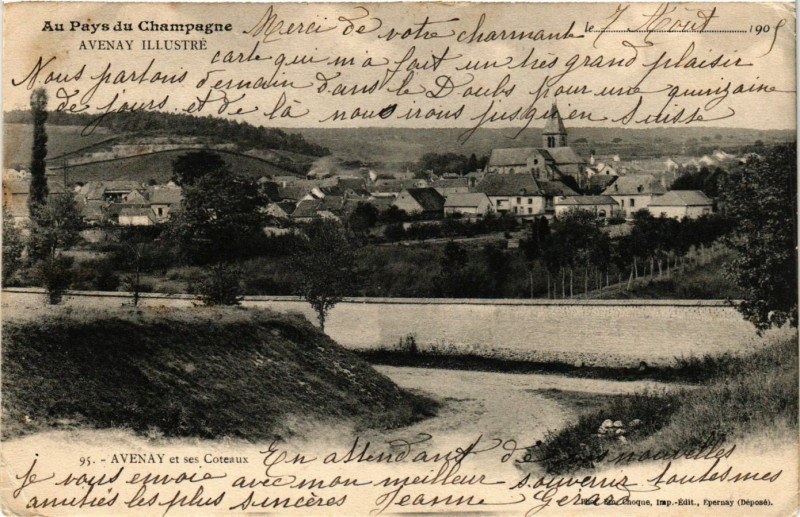 Au Pays du Champagne
AVENAY ILLUSTRÉ
le 7 Août 1905
Merci de votre charmante
carte qui m'a fait un très grand plaisir
Nous partons demain dans le Doubs pour une quinzaine
de jours et de là nous irons jusqu'en Suisse
95. - AVENAY et ses Coteaux
En attendant de vos nouvelles
je vous envoie avec mon meilleur souvenir toutes mes
amitiés les plus sincères Jeanne Gérard
Choque, Imp.-Édit., Épernay (Déposé).